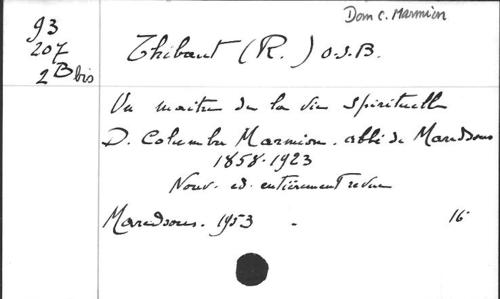 Dom C. Marmion
93
207
2 B bis
Thibaut (R.) O.S.B.
Un maître de la vie spirituelle
D. Columba Marmion. abbé de Maredsous
1858-1923
Nouv. ed. entièrement revue
Maredsous. 1953 - 16°